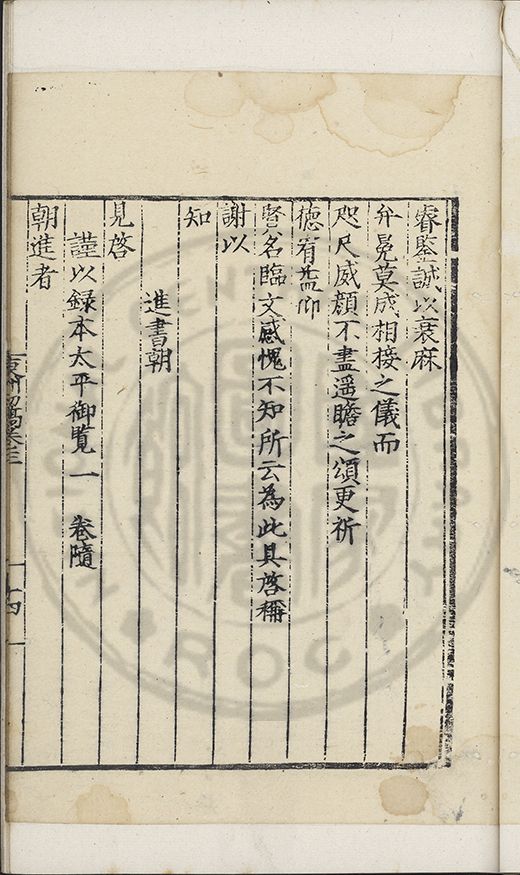 睿鑒誠以衰麻
弁冕莫成相接之儀而
咫尺威顔不盡遥瞻之頌更祈
德宥益仰
賢名臨文感愧不知所云為此具啓稱
謝以
知
進書朝
見啓
謹以録本太平御覧一 卷隨
朝進者
十四